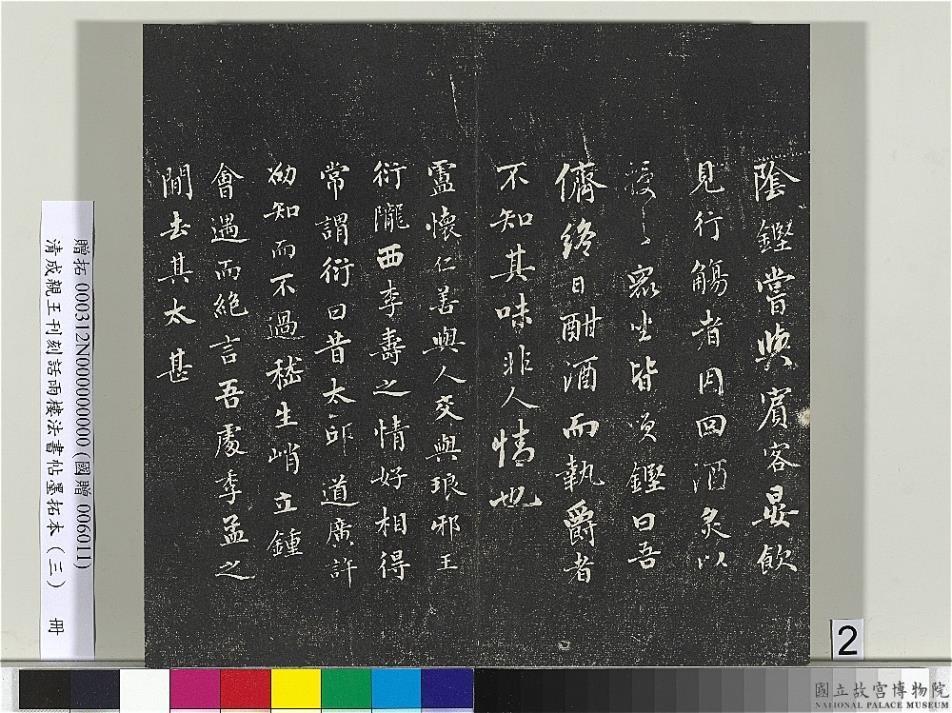 陰鏗嘗與賓客晏飲
見行觴者因回酒炙以
授之衆坐皆笑鏗曰吾
儕終日酣酒而執爵者
不知其味非人情也
盧懷仁善與人交與琅邪王
衍隴西李壽之情好相得
常謂衍曰昔太邱道廣許
劭知而不過嵇生峭立鍾
會遇而絕言吾處季孟之
間去其太甚
贈拓 000312N000000000 (國贈 006011)
清成親王刊刻話雨樓法書帖墨拓本（三） 冊
2
國立故宮博物院
NATIONAL PALACE MUSEUM